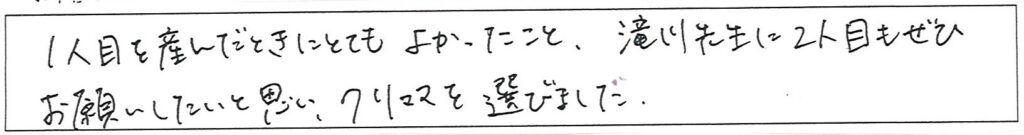 1人目を産んだときにとてもよかったこと、滝川先生に2人目もぜひ
お願いしたいと思い、クリロスを選びました。